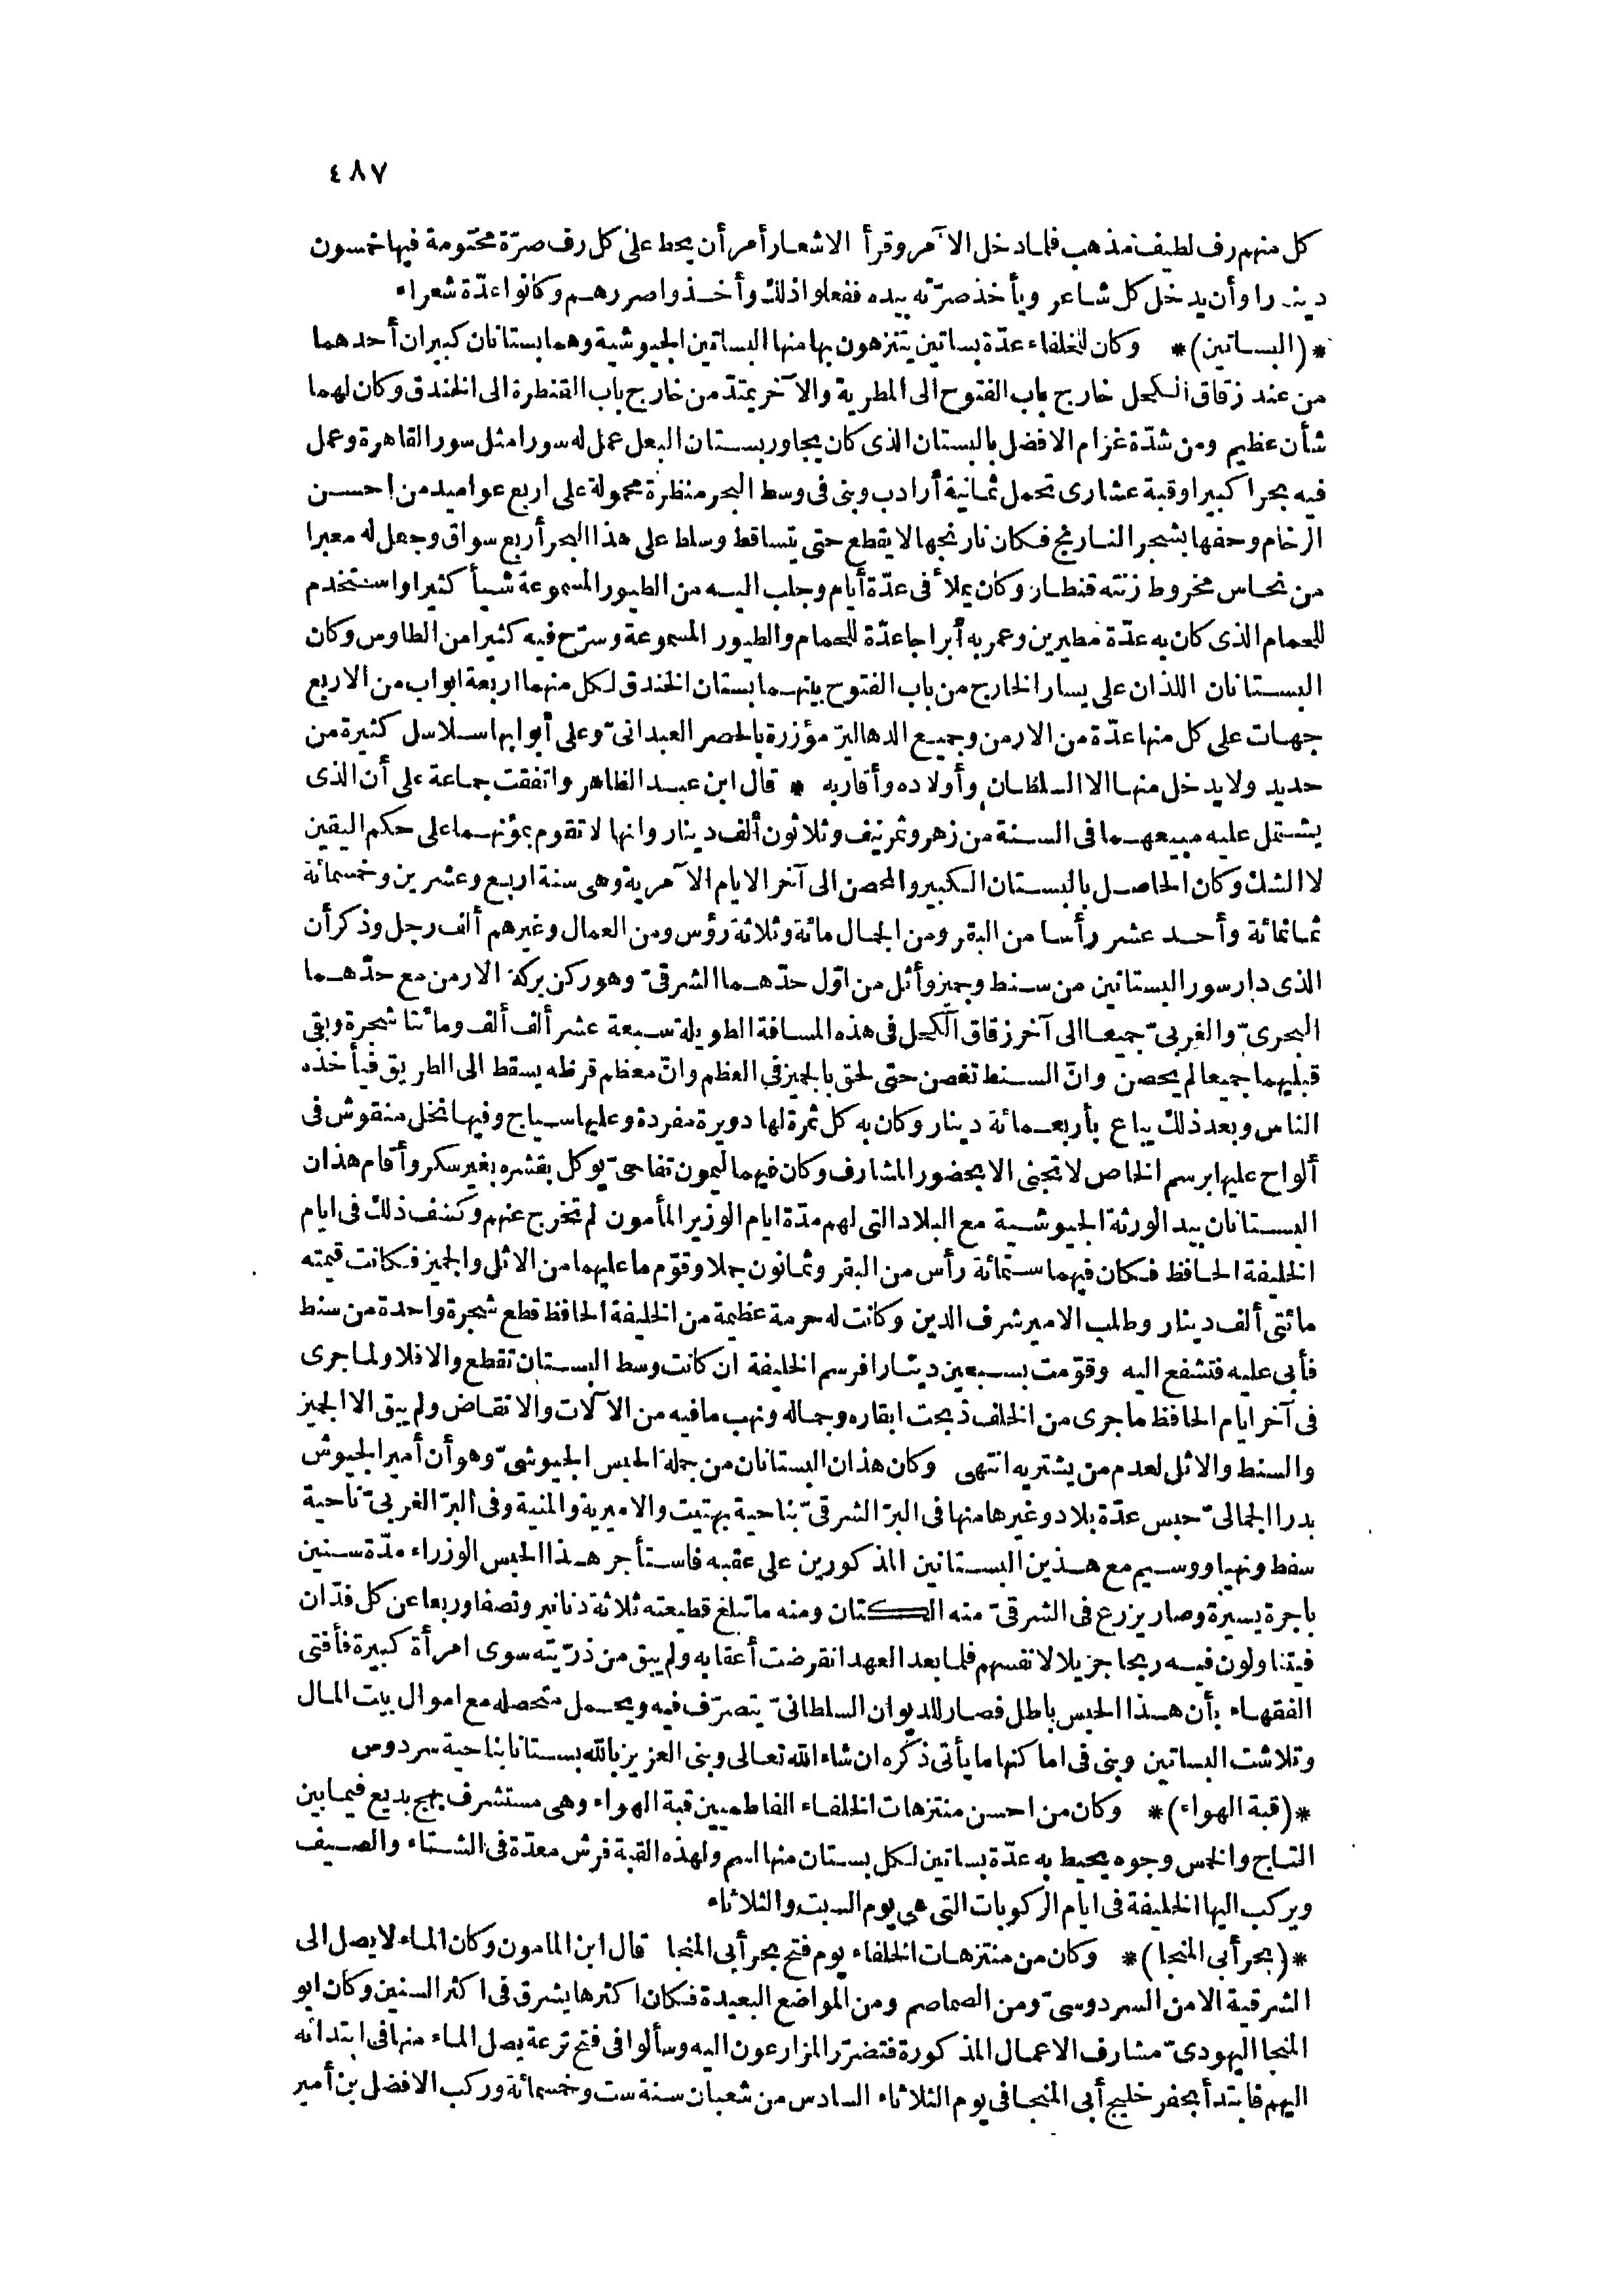 ٤٨٧
كل منهم رف لطيف مذهب فلما دخل الآمر وقرأ الاشعار أمر أن يحط على كل رف صرّة مختومة فيها خمسون
دينارا وأن يدخل كل شاعر ويأخذ صرّته بيده ففعلوا ذلك وأخذوا صررهم وكانوا عدّة شعراء
* (البساتين) * وكان للخلفاء عدّة بساتين يتنزهون بها منها البساتين الجيوشية وهما بستانان كبيران أحدهما
من عند زقاق الكحل خارج باب الفتوح الى المطرية والآخر يمتدّ من خارج باب القنطرة الى الخندق وكان لهما
شأن عظيم ومن شدّة غرام الافضل بالبستان الذى كان يجاور بستان البعل عمل له سورا مثل سور القاهرة وعمل
فيه بحرا كبيرا وقبة عشارى تحمل ثمانية أرادب وبنى فى وسط البحر منظرة محمولة على اربع عواميد من احسن
الرخام وحفها بشجر النارنج فكان نارنجها لا يقطع حتى يتساقط وسلط على هذا البحر أربع سواق وجعل له معبرا
من نحاس مخروط زنته قنطار وكان يملأ فى عدّة أيام وجلب اليه من الطيور المسموعة شيأ كثيرا واستخدم
للحمام الذى كان به عدّة مطيرين وعمر به أبراجا عدّة للحمام والطيور المسموعة وسرّح فيه كثيرا من الطاوس وكان
البستانان اللذان على يسار الخارج من باب الفتوح بينهما بستان الخندق لكل منهما اربعة ابواب من الاربع
جهات على كل منها عدّة من الارمن وجميع الدهاليز مؤزرة بالحصر العبدانىّ وعلى أبوابها سلاسل كثيرة من
حديد ولا يدخل منها الا السلطان وأولاده وأقاربه * قال ابن عبد الظاهر واتفقت جماعة على أن الذى
يشتمل عليه مبيعهما فى السنة من زهر وثمر نيف وثلاثون ألف دينار وانها لا تقوم بمؤنهما على حكم اليقين
لا الشك وكان الحاصل بالبستان الكبير والمحصن الى آخر الايام الآمرية وهى سنة اربع وعشرين وخمسمائة
ثمانمائة وأحد عشر رأسا من البقر ومن الجمال مائة وثلاثة رؤس ومن العمال وغيرهم ألف رجل وذكر أن
الذى دار سور البستانين من سنط وجميز وأثل من اوّل حدّهما الشرقىّ وهو ركن بركة الارمن مع حدّهما
البحرىّ والغربىّ جميعا الى آخر زقاق الكحل فى هذه المسافة الطويلة سبعة عشر ألف ألف ومائتا شجرة وبقى
قبليهما جميعا لم يحصن وانّ السنط تغصن حتى لحق بالجميز فى العظم وانّ معظم قرظه يسقط الى الطريق فيأخذه
الناس وبعد ذلك يباع بأربعمائة دينار وكان به كل ثمرة لها دويرة مفردة وعليها سياج وفيها نخل منقوش فى
ألواح عليها برسم الخاص لا تجنى الا بحضور المشارف وكان فيهما ليمون تفاحىّ يوكل بقشره بغير سكر وأقام هذان
البستانان بيد الورثة الجيوشية مع البلاد التى لهم مدّة ايام الوزير المأمون لم تخرج عنهم وكشف ذلك فى ايام
الخليفة الحافظ فكان فيهما ستمائة رأس من البقر وثمانون جملا وقوّم ما عليهما من الاثل والجميز فكانت قيمته
مائتى ألف دينار وطلب الامير شرف الدين وكانت له حرمة عظيمة من الخليفة الحافظ قطع شجرة واحدة من سنط
فأبى عليه فتشفع اليه وقوّمت بسبعين دينارا فرسم الخليفة ان كانت وسط البستان تقطع والا فلا ولما جرى
فى آخر ايام الحافظ ما جرى من الخلف ذبحت ابقاره وجماله ونهب ما فيه من الآلات والانقاض ولم يبق الا الجميز
والسنط والاثل لعدم من يشتريه انتهى وكان هذان البستانان من جملة الحبس الجيوشىّ وهو أن أمير الجيوش
بدرا الجمالىّ حبس عدّة بلاد وغيرها منها فى البرّ الشرقىّ بناحية بهتيت والاميرية والمنية وفى البرّ الغربىّ ناحية
سفط ونهيا ووسيم مع هذين البستانين المذكورين على عقبه فاستأجر هذا الحبس الوزراء مدّة سنين
باجرة يسيرة وصار يزرع فى الشرقىّ منه الكتان ومنه ما تبلغ قطيعته ثلاثة دنانير ونصفا وربعا عن كل فدّان
فيتناولون فيه ربحا جزيلا لانفسهم فلما بعد العهد انقرضت أعقابه ولم يبق من ذرّيته سوى امرأة كبيرة فأفتى
الفقهاء بأن هذا الحبس باطل فصار للديوان السلطانىّ يتصرّف فيه ويحمل متحصله مع اموال بيت المال
وتلاشت البساتين وبنى فى اماكنها ما يأتى ذكره ان شاء الله تعالى وبنى العزيز بالله بستانا بناحية سردوس
* (قبة الهواء) * وكان من احسن منتزهات الخلفاء الفاطميين قبة الهواء وهى مستشرف بهج بديع فيما بين
التاج والخمس وجوه يحيط به عدّة بساتين لكل بستان منها اسم ولهذه القبة فرش معدّة فى الشتاء والصيف
ويركب اليها الخليفة فى ايام الركوبات التى هى يوم السبت والثلاثاء
* (بحر أبى المنجا) * وكان من منتزهات الخلفاء يوم فتح بحر أبى المنجا قال ابن المامون وكان الماء لا يصل الى
الشرقية الا من السردوسىّ ومن الصماصم ومن المواضع البعيدة فكان اكثرها يشرق فى اكثر السنين وكان ابو
المنجا اليهودىّ مشارف الاعمال المذكورة فتضرّر المزارعون اليه وسألوا فى فتح ترعة يصل الماء منها فى ابتدائه
اليهم فابتدأ بحفر خليج أبى المنجا فى يوم الثلاثاء السادس من شعبان سنة ست وخمسمائة وركب الافضل بن أمير